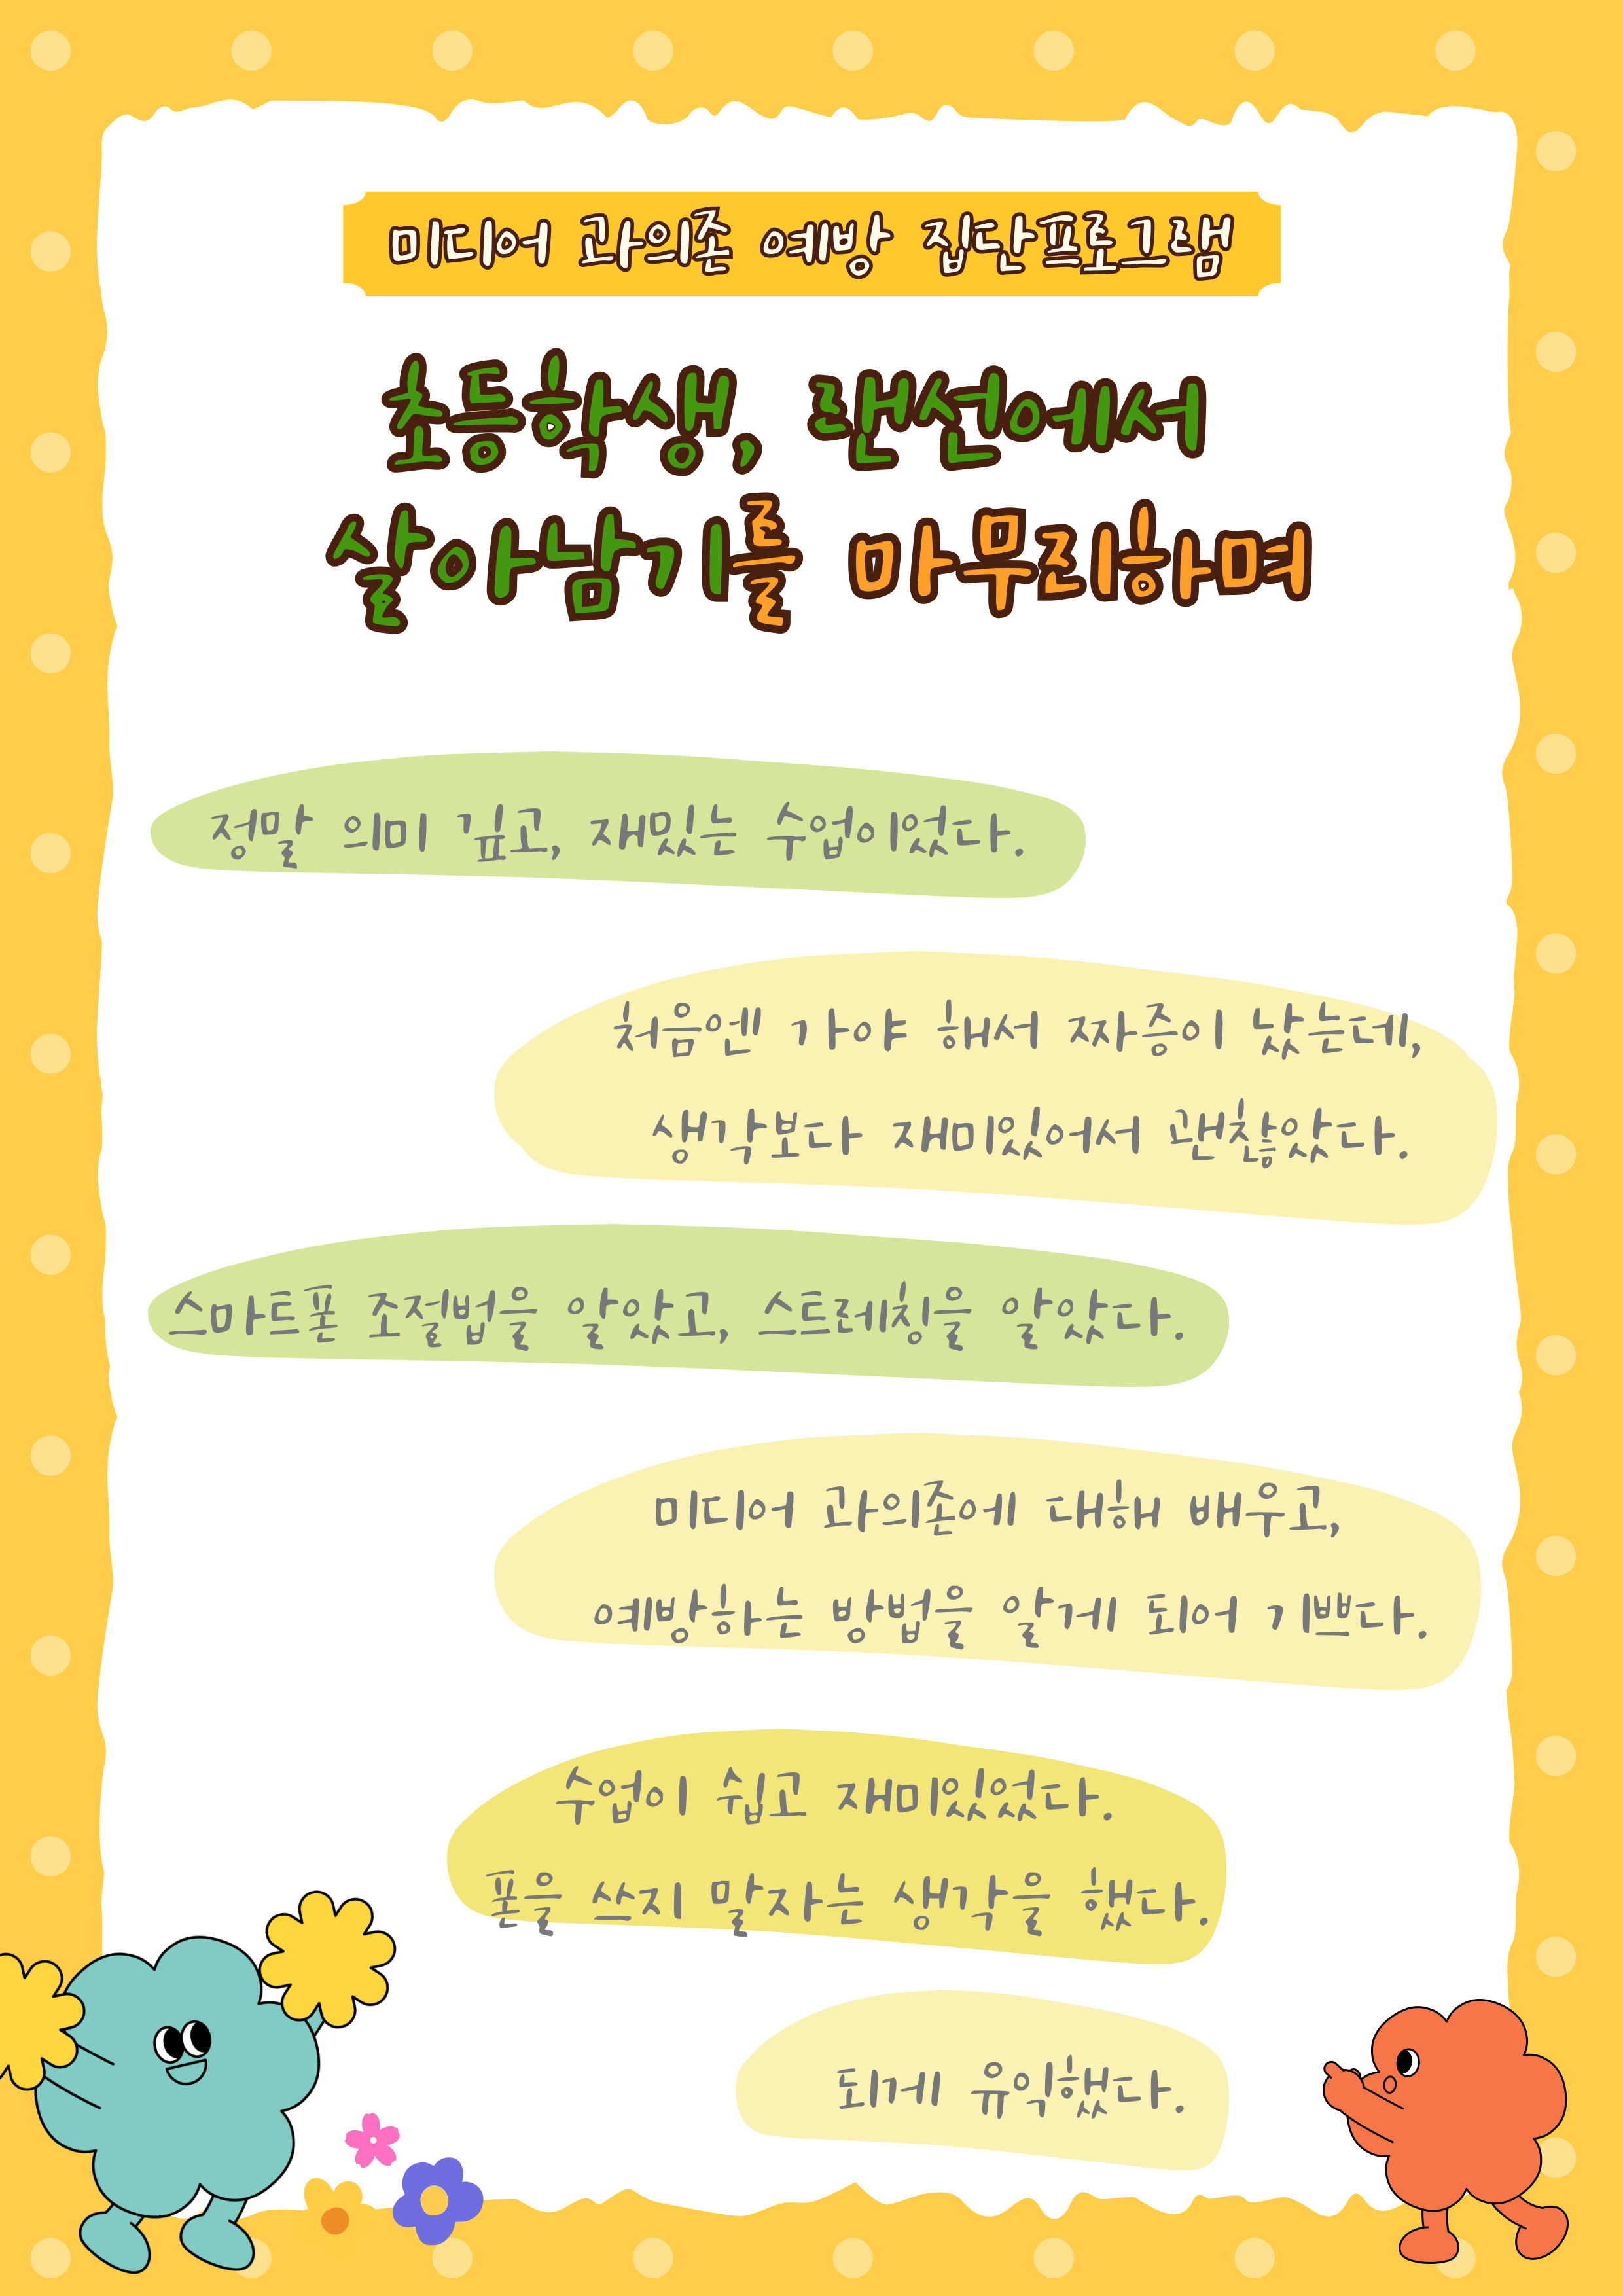 미디어 과의존 예방 집단프로그램
초등학생, 랜선에서
살아남기를 마무리하며
정말 의미 깊고, 재밌는 수업이었다.
처음엔 가야 해서 짜증이 났는데,
생각보다 재미있어서 괜찮았다.
스마트폰 조절법을 알았고, 스트레칭을 알았다.
미디어 과의존에 대해 배우고,
예방하는 방법을 알게 되어 기쁘다.
수업이 쉽고 재미있었다.
폰을 쓰지 말자는 생각을 했다.
되게 유익했다.